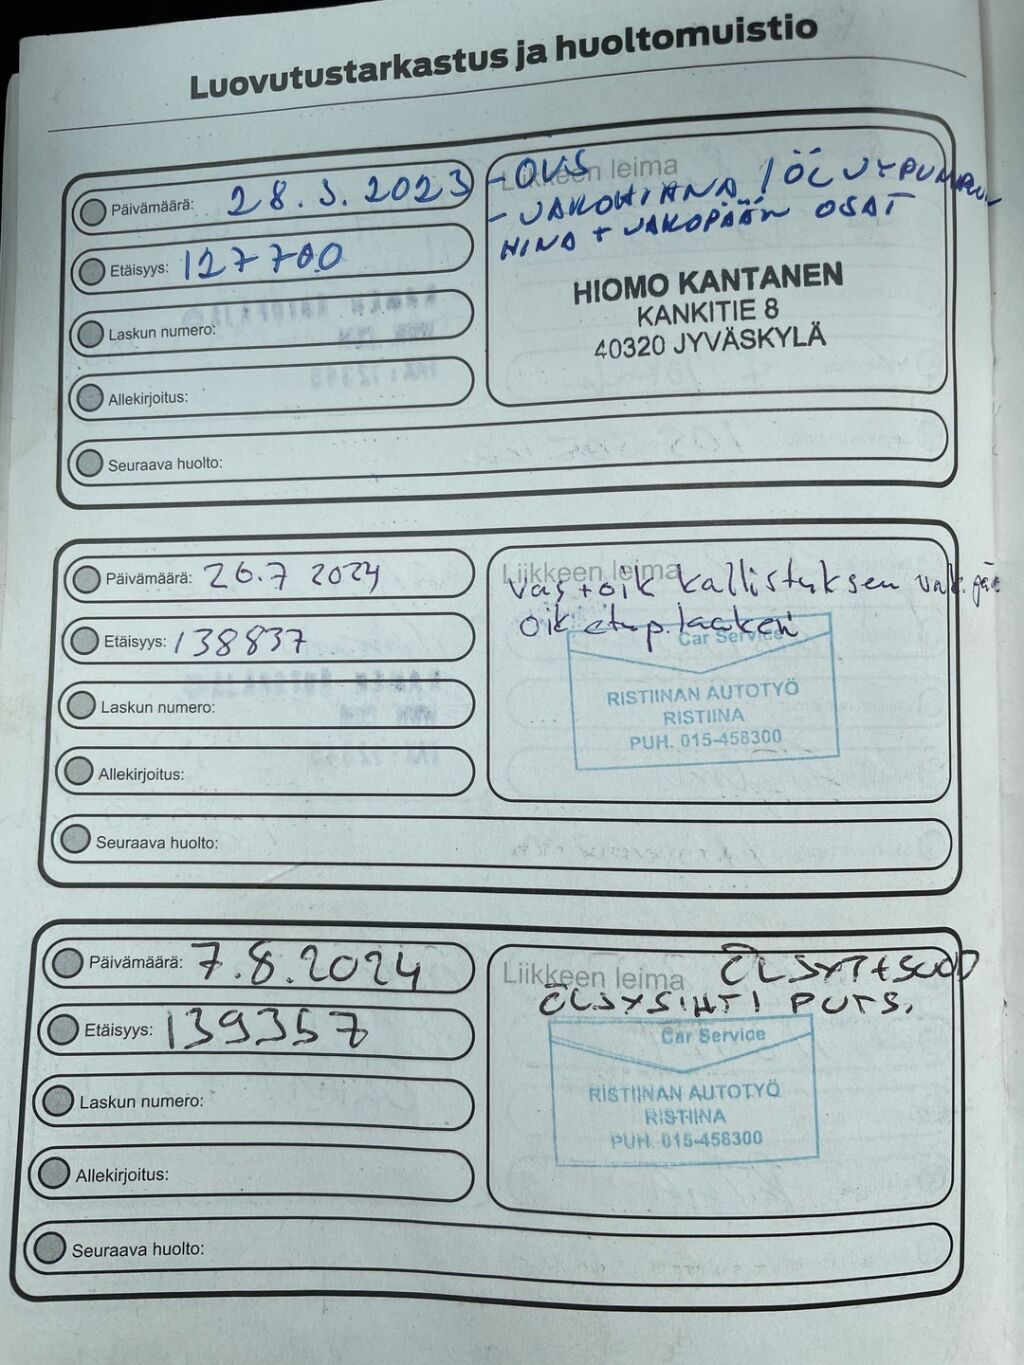 Luovutustarkastus ja huoltomuistio
Päivämäärä: 28.3.2023
Etäisyys: 127700
Laskun numero:
Allekirjoitus:
Seuraava huolto:
Liikkeen leima
- OVS
- JAKOHIHNA / ÖLJYPUMPUN
HINA + JAKOPÄÄN OSAT
HIOMO KANTANEN
KANKITIE 8
40320 JYVÄSKYLÄ
Päivämäärä: 26.7 2024
Etäisyys: 138837
Laskun numero:
Allekirjoitus:
Seuraava huolto:
Liikkeen leima
vas + oik kallistuksen vak.
oik etup. laakeri
Car Service
RISTIINAN AUTOTYÖ
RISTIINA
PUH. 015-456300
Päivämäärä: 7.8.2024
Etäisyys: 139357
Laskun numero:
Allekirjoitus:
Seuraava huolto:
Liikkeen leima
ÖLJYT + SUOD
ÖLJYSIHTI PUTS.
Car Service
RISTIINAN AUTOTYÖ
RISTIINA
PUH. 015-456300